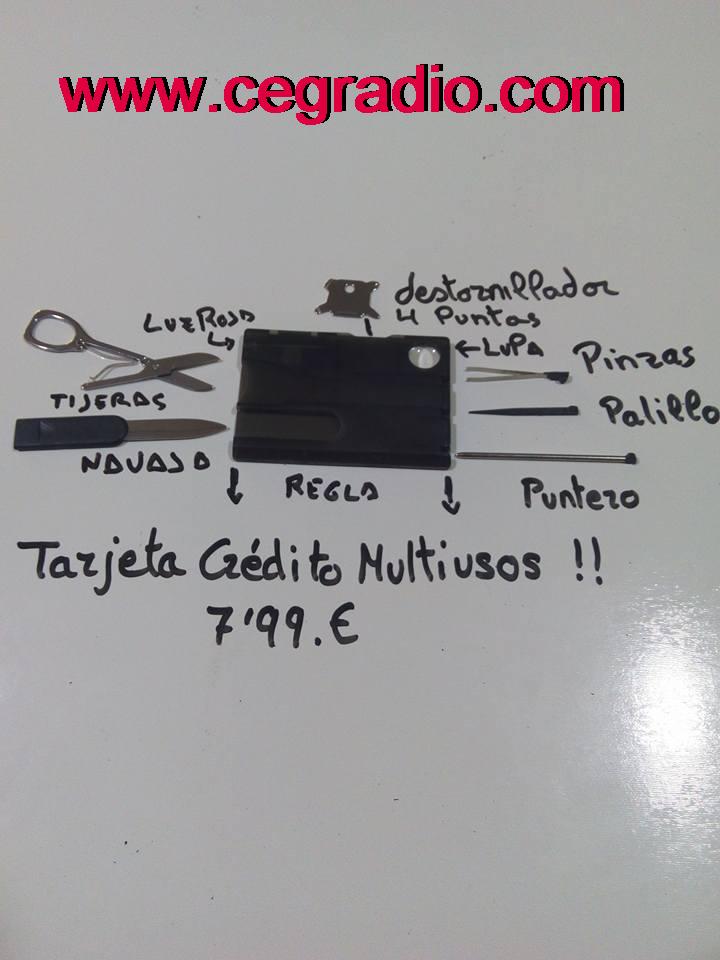 www.cegradio.com
destornillador
4 Puntas
LUZ ROJA
LUPA
Pinzas
TIJERAS
Palillo
NAVAJA
REGLA
Puntero
Tarjeta Crédito Multiusos !!
7'99.€